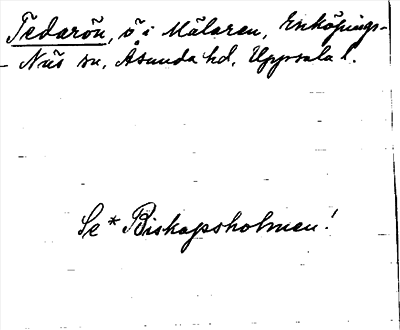 Tedarön, ö i Mälaren, Enköpings-
-Näs sn, Åsunda hd, Uppsala l.
Se *Biskopsholmen!